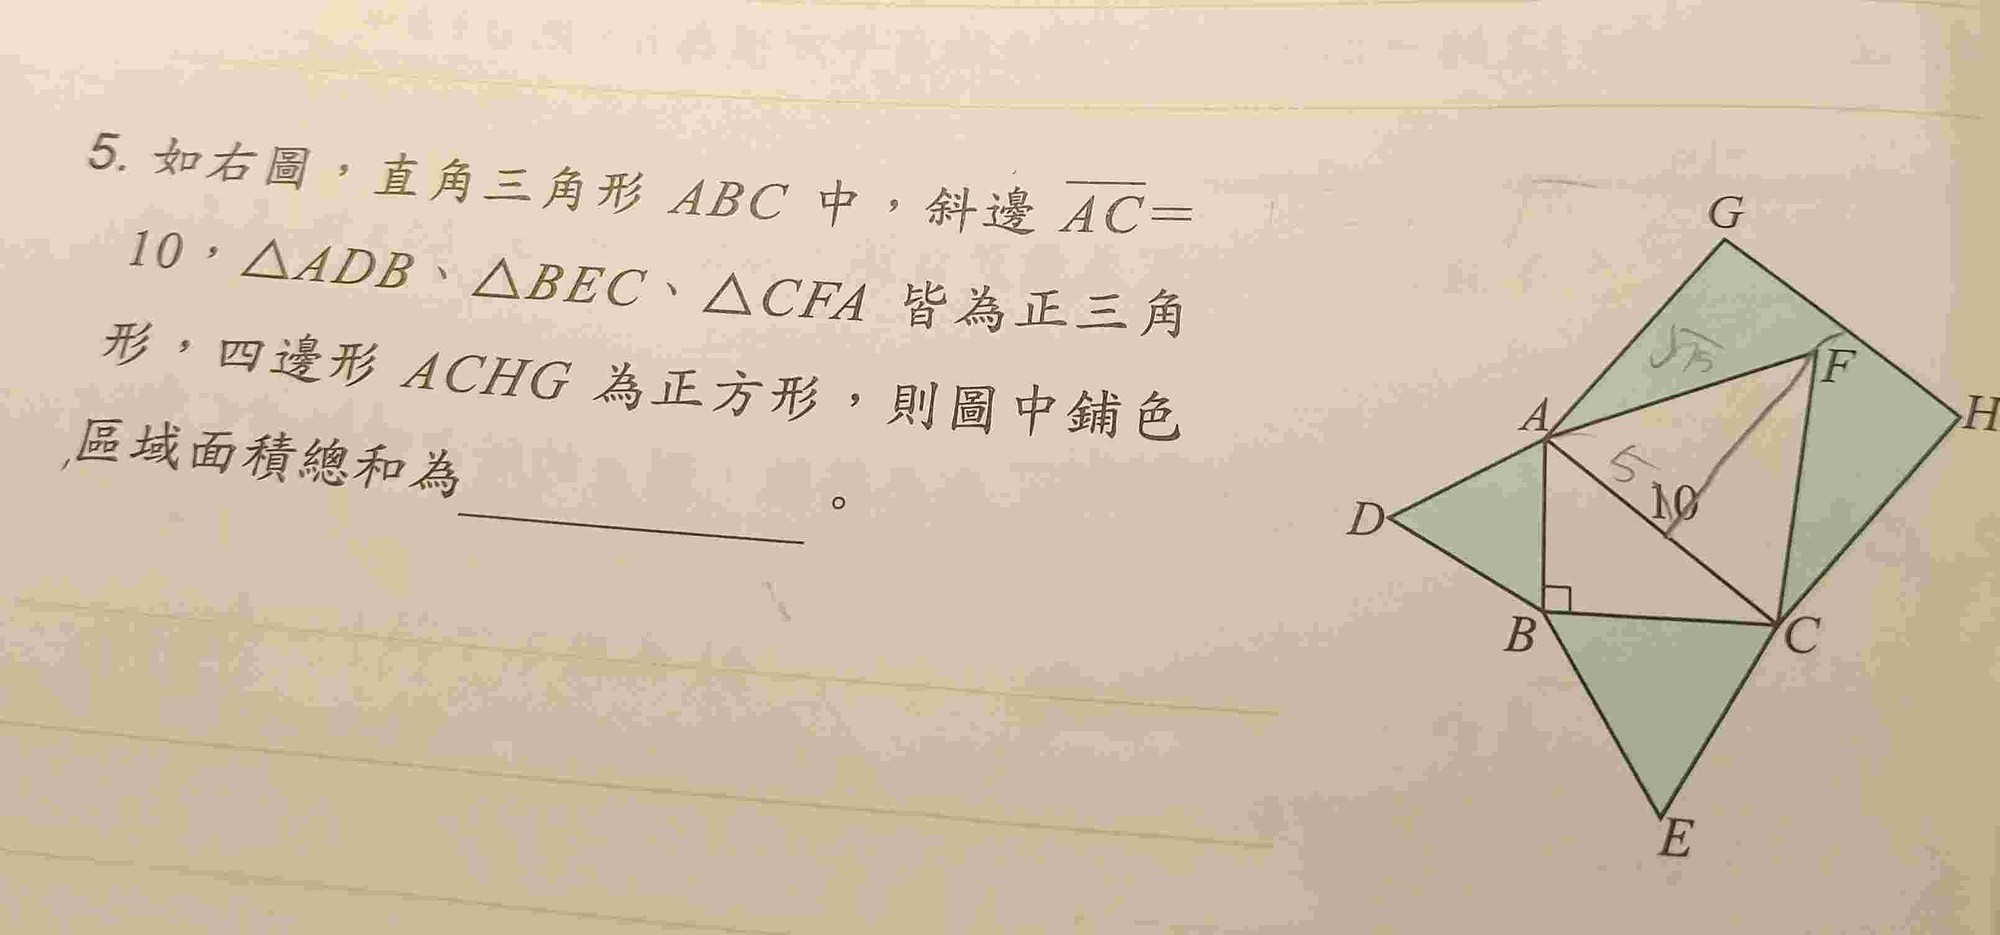 5. 如右圖，直角三角形 ABC 中，斜邊 AC=
10，△ADB、△BEC、△CFA 皆為正三角
形，四邊形 ACHG 為正方形，則圖中鋪色
區域面積總和為________。
G
√75
F
H
A
5
10
D
B
C
E